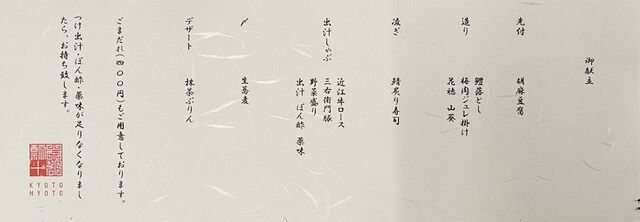 御献立
先付　胡麻豆腐
造り　鱧落とし
梅肉ジュレ掛け
花穂　山葵
凌ぎ　鯖炙り寿司
出汁しゃぶ　近江牛ロース
三右衛門豚
野菜盛り
出汁　ぽん酢　薬味
〆　生蕎麦
デザート　抹茶ぷりん
ごまだれ(四〇〇円)もご用意しております。
つけ出汁・ぽん酢・薬味が足りなくなりまし
たら、お持ち致します。
KYOTO
HYOTO